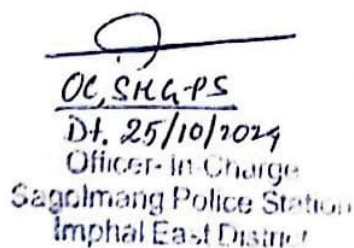 OC, SMG-PS
Dt. 25/10/2024
Officer-In-Charge
Sagolmang Police Station
Imphal East District